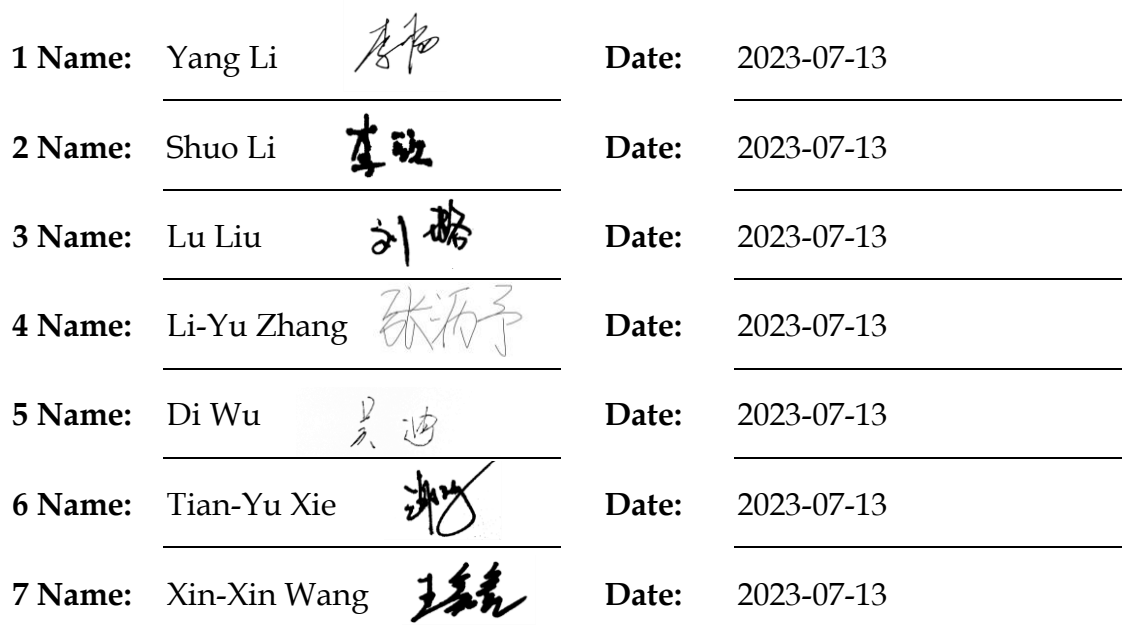 1 Name: Yang Li 李杨 Date: 2023-07-13
2 Name: Shuo Li 李硕 Date: 2023-07-13
3 Name: Lu Liu 刘璐 Date: 2023-07-13
4 Name: Li-Yu Zhang 张沥予 Date: 2023-07-13
5 Name: Di Wu 吴迪 Date: 2023-07-13
6 Name: Tian-Yu Xie Date: 2023-07-13
7 Name: Xin-Xin Wang 王鑫鑫 Date: 2023-07-13